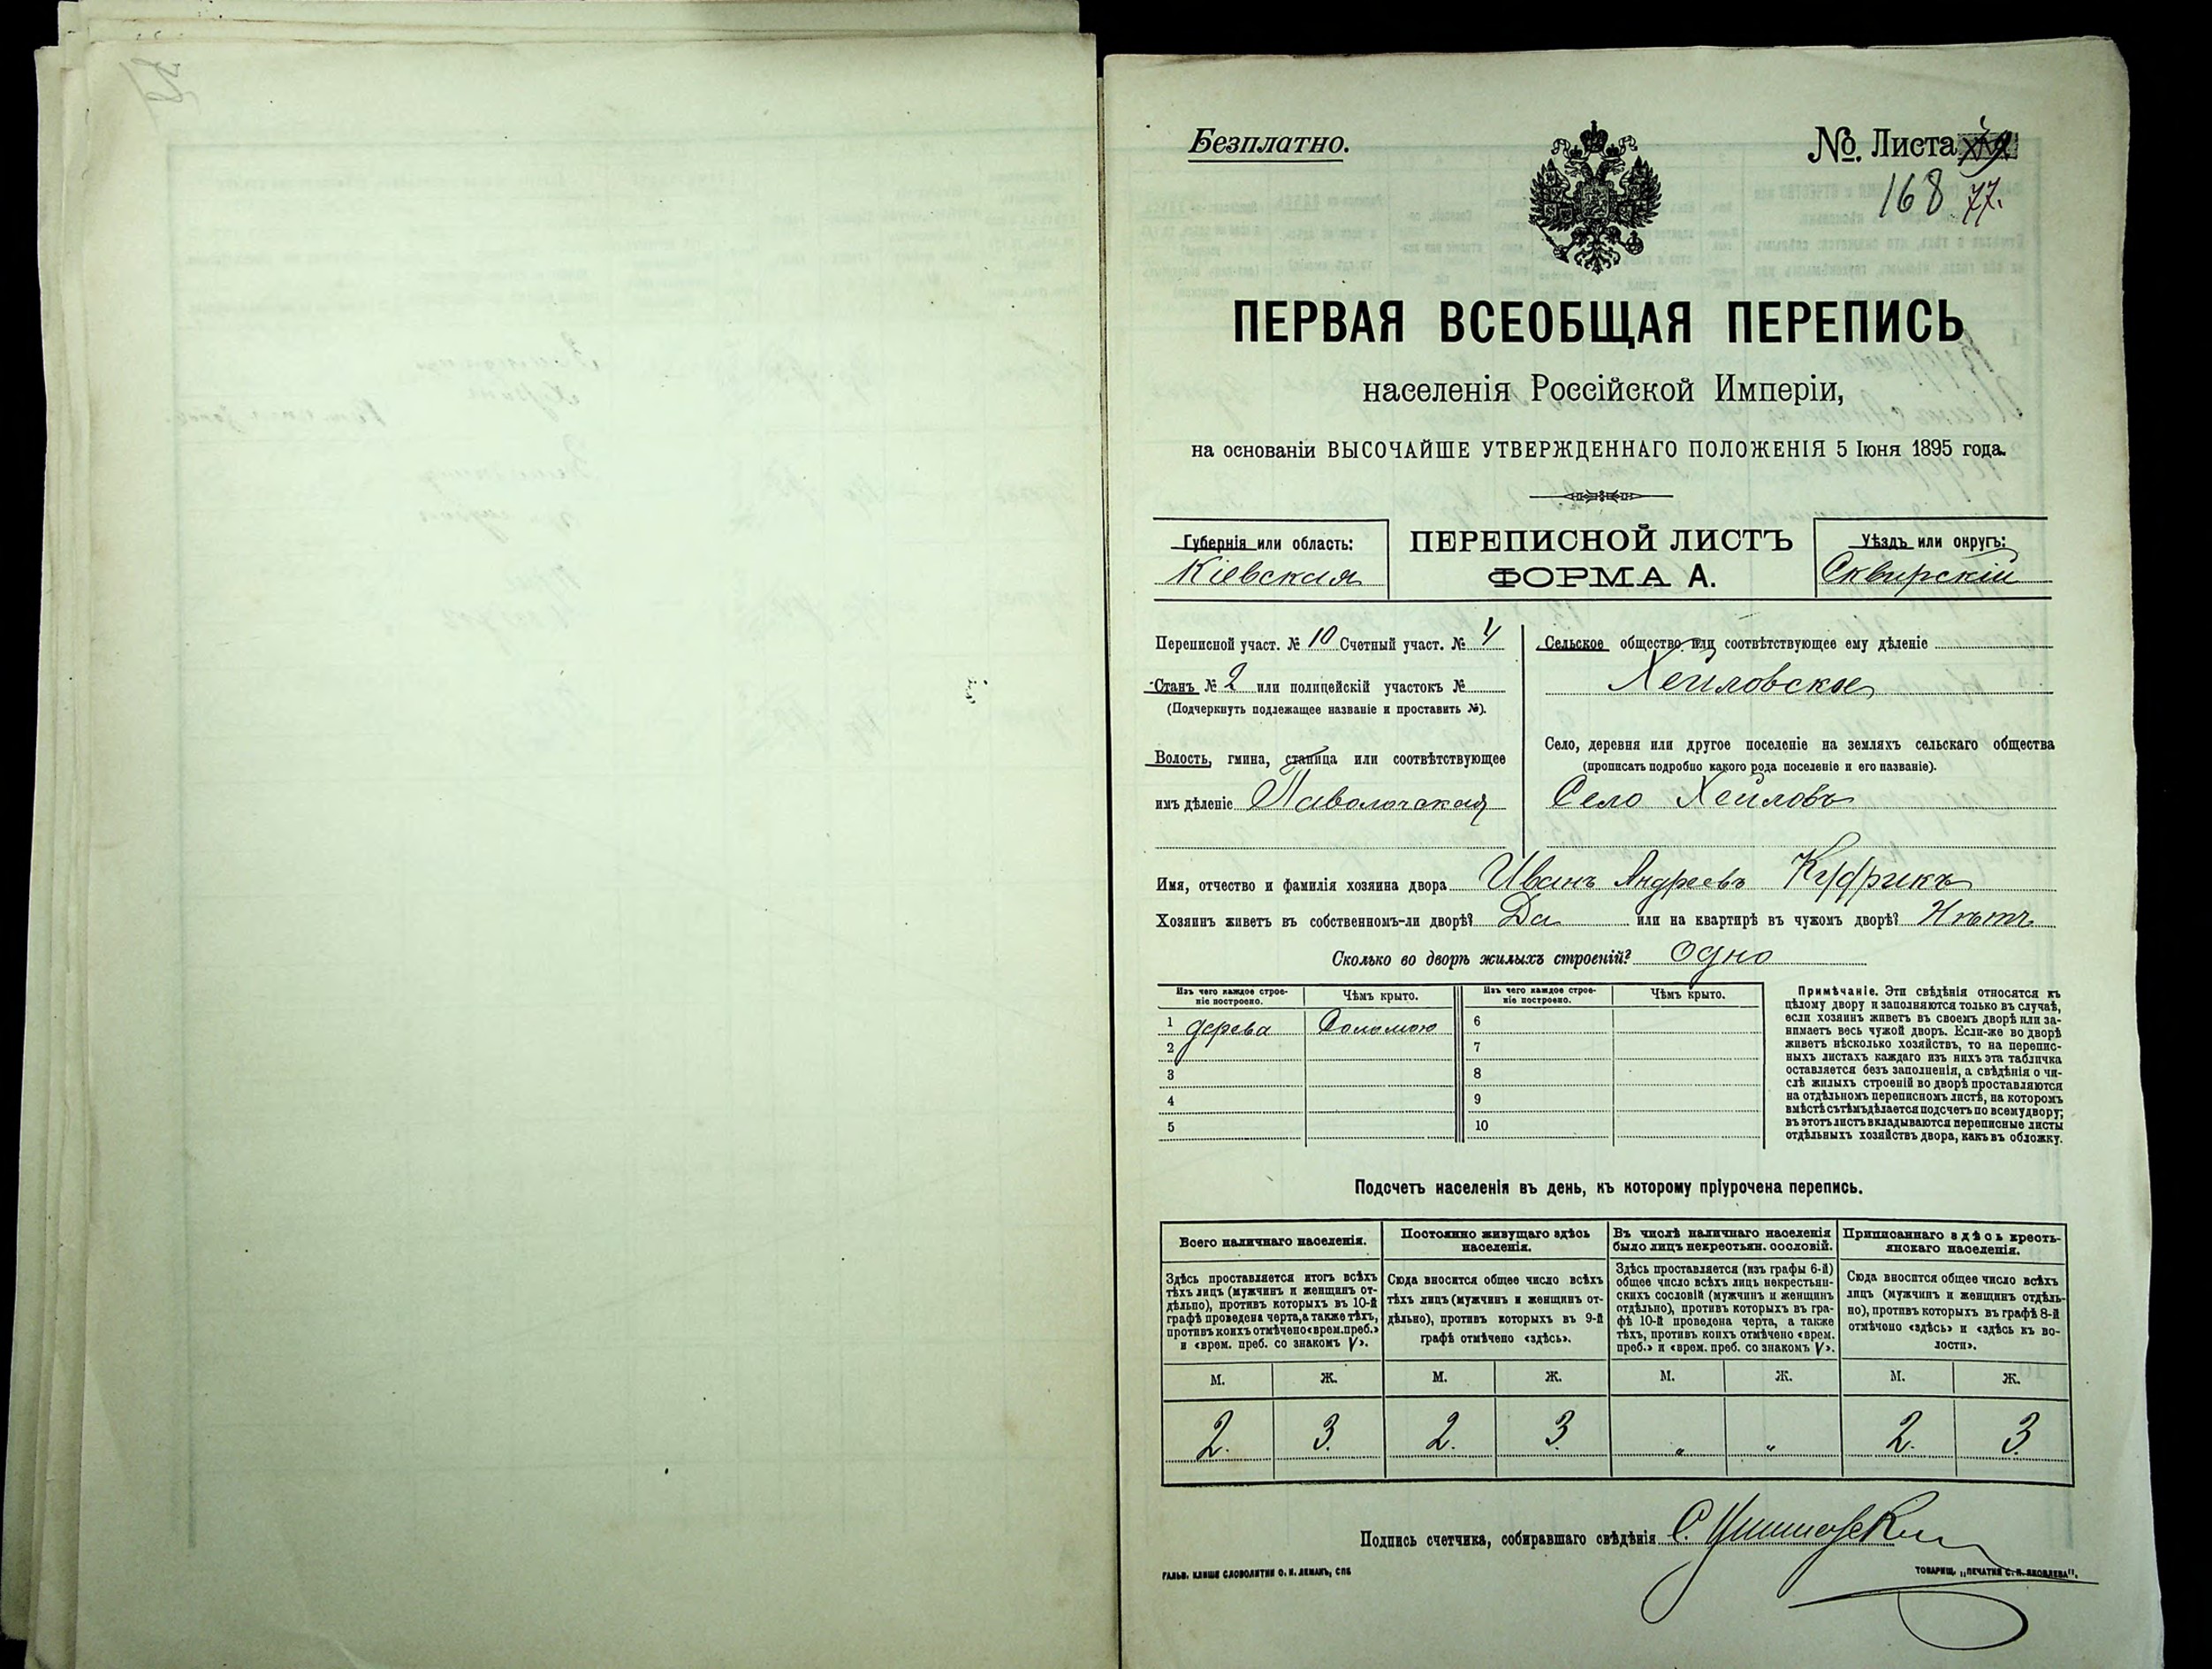 Безплатно.
No. Листа
168 77.
ПЕРВАЯ ВСЕОБЩАЯ ПЕРЕПИСЬ
населенія Россійской Имперіи,
на основаніи ВЫСОЧАЙШЕ УТВЕРЖДЕННАГО ПОЛОЖЕНІЯ 5 Іюня 1895 года.
Губернія или область:
Кіевская
ПЕРЕПИСНОЙ ЛИСТЪ
ФОРМА А.
Уѣздъ или округъ:
Сквирскій
Переписной участ. № 10 Счетный участ. № 4
Станъ № 2 или полицейскій участокъ №
(Подчеркнуть подлежащее названіе и проставить №).
Волость, гмина, станица или соотвѣтствующее
имъ дѣленіе Паволочская
Сельское общество или соотвѣтствующее ему дѣленіе
Хейловское
Село, деревня или другое поселеніе на земляхъ сельскаго общества
(прописать подробно какого рода поселеніе и его названіе).
Село Хейловъ
Имя, отчество и фамилія хозяина двора Иванъ Андреевъ Куфрикъ
Хозяинъ живетъ въ собственномъ-ли дворѣ? Да или на квартирѣ въ чужомъ дворѣ? Нѣтъ
Сколько во дворѣ жилыхъ строеній? Одно
Изъ чего каждое строе-
ніе построено.
Чѣмъ крыто.
Изъ чего каждое строе-
ніе построено.
Чѣмъ крыто.
1 дерева Соломою 6
2 7
3 8
4 9
5 10
Примѣчаніе. Эти свѣдѣнія относятся къ
цѣлому двору и заполняются только въ случаѣ,
если хозяинъ живетъ въ своемъ дворѣ или за-
нимаетъ весь чужой дворъ. Если-же во дворѣ
живетъ нѣсколько хозяйствъ, то на перепис-
ныхъ листахъ каждаго изъ нихъ эта табличка
оставляется безъ заполненія, а свѣдѣнія о чи-
слѣ жилыхъ строеній во дворѣ проставляются
на отдѣльномъ переписномъ листѣ, на которомъ
вмѣстѣ съ тѣмъ дѣлается подсчетъ по всему двору;
въ этотъ листъ вкладываются переписные листы
отдѣльныхъ хозяйствъ двора, какъ въ обложку.
Подсчетъ населенія въ день, къ которому пріурочена перепись.
Всего наличнаго населенія.
Постоянно живущаго здѣсь
населенія.
Въ числѣ наличнаго населенія
было лицъ некрестьян. сословій.
Приписаннаго здѣсь кресть-
янскаго населенія.
Здѣсь проставляется итогъ всѣхъ
тѣхъ лицъ (мужчинъ и женщинъ от-
дѣльно), противъ которыхъ въ 10-й
графѣ проведена черта, а также тѣхъ,
противъ коихъ отмѣчено «врем. преб.»
и «врем. преб. со знакомъ V».
Сюда вносится общее число всѣхъ
тѣхъ лицъ (мужчинъ и женщинъ от-
дѣльно), противъ которыхъ въ 9-й
графѣ отмѣчено «здѣсь».
Здѣсь проставляется (изъ графы 6-й)
общее число всѣхъ лицъ некрестьян-
скихъ сословій (мужчинъ и женщинъ
отдѣльно), противъ которыхъ въ гра-
фѣ 10-й проведена черта, а также
тѣхъ, противъ коихъ отмѣчено «врем.
преб.» и «врем. преб. со знакомъ V».
Сюда вносится общее число всѣхъ
лицъ (мужчинъ и женщинъ отдѣль-
но), противъ которыхъ въ графѣ 8-й
отмѣчено «здѣсь» и «здѣсь къ во-
лости».
М. Ж. М. Ж. М. Ж. М. Ж.
2. 3. 2. 3. „ „ 2. 3.
Подпись счетчика, собиравшаго свѣдѣнія С.
ГАЛЬВ. КЛИШЕ СЛОВОЛИТНИ О. И. ЛЕМАНЪ, СПБ
ТОВАРИЩ. „ПЕЧАТНЯ С. П. ЯКОВЛЕВА".